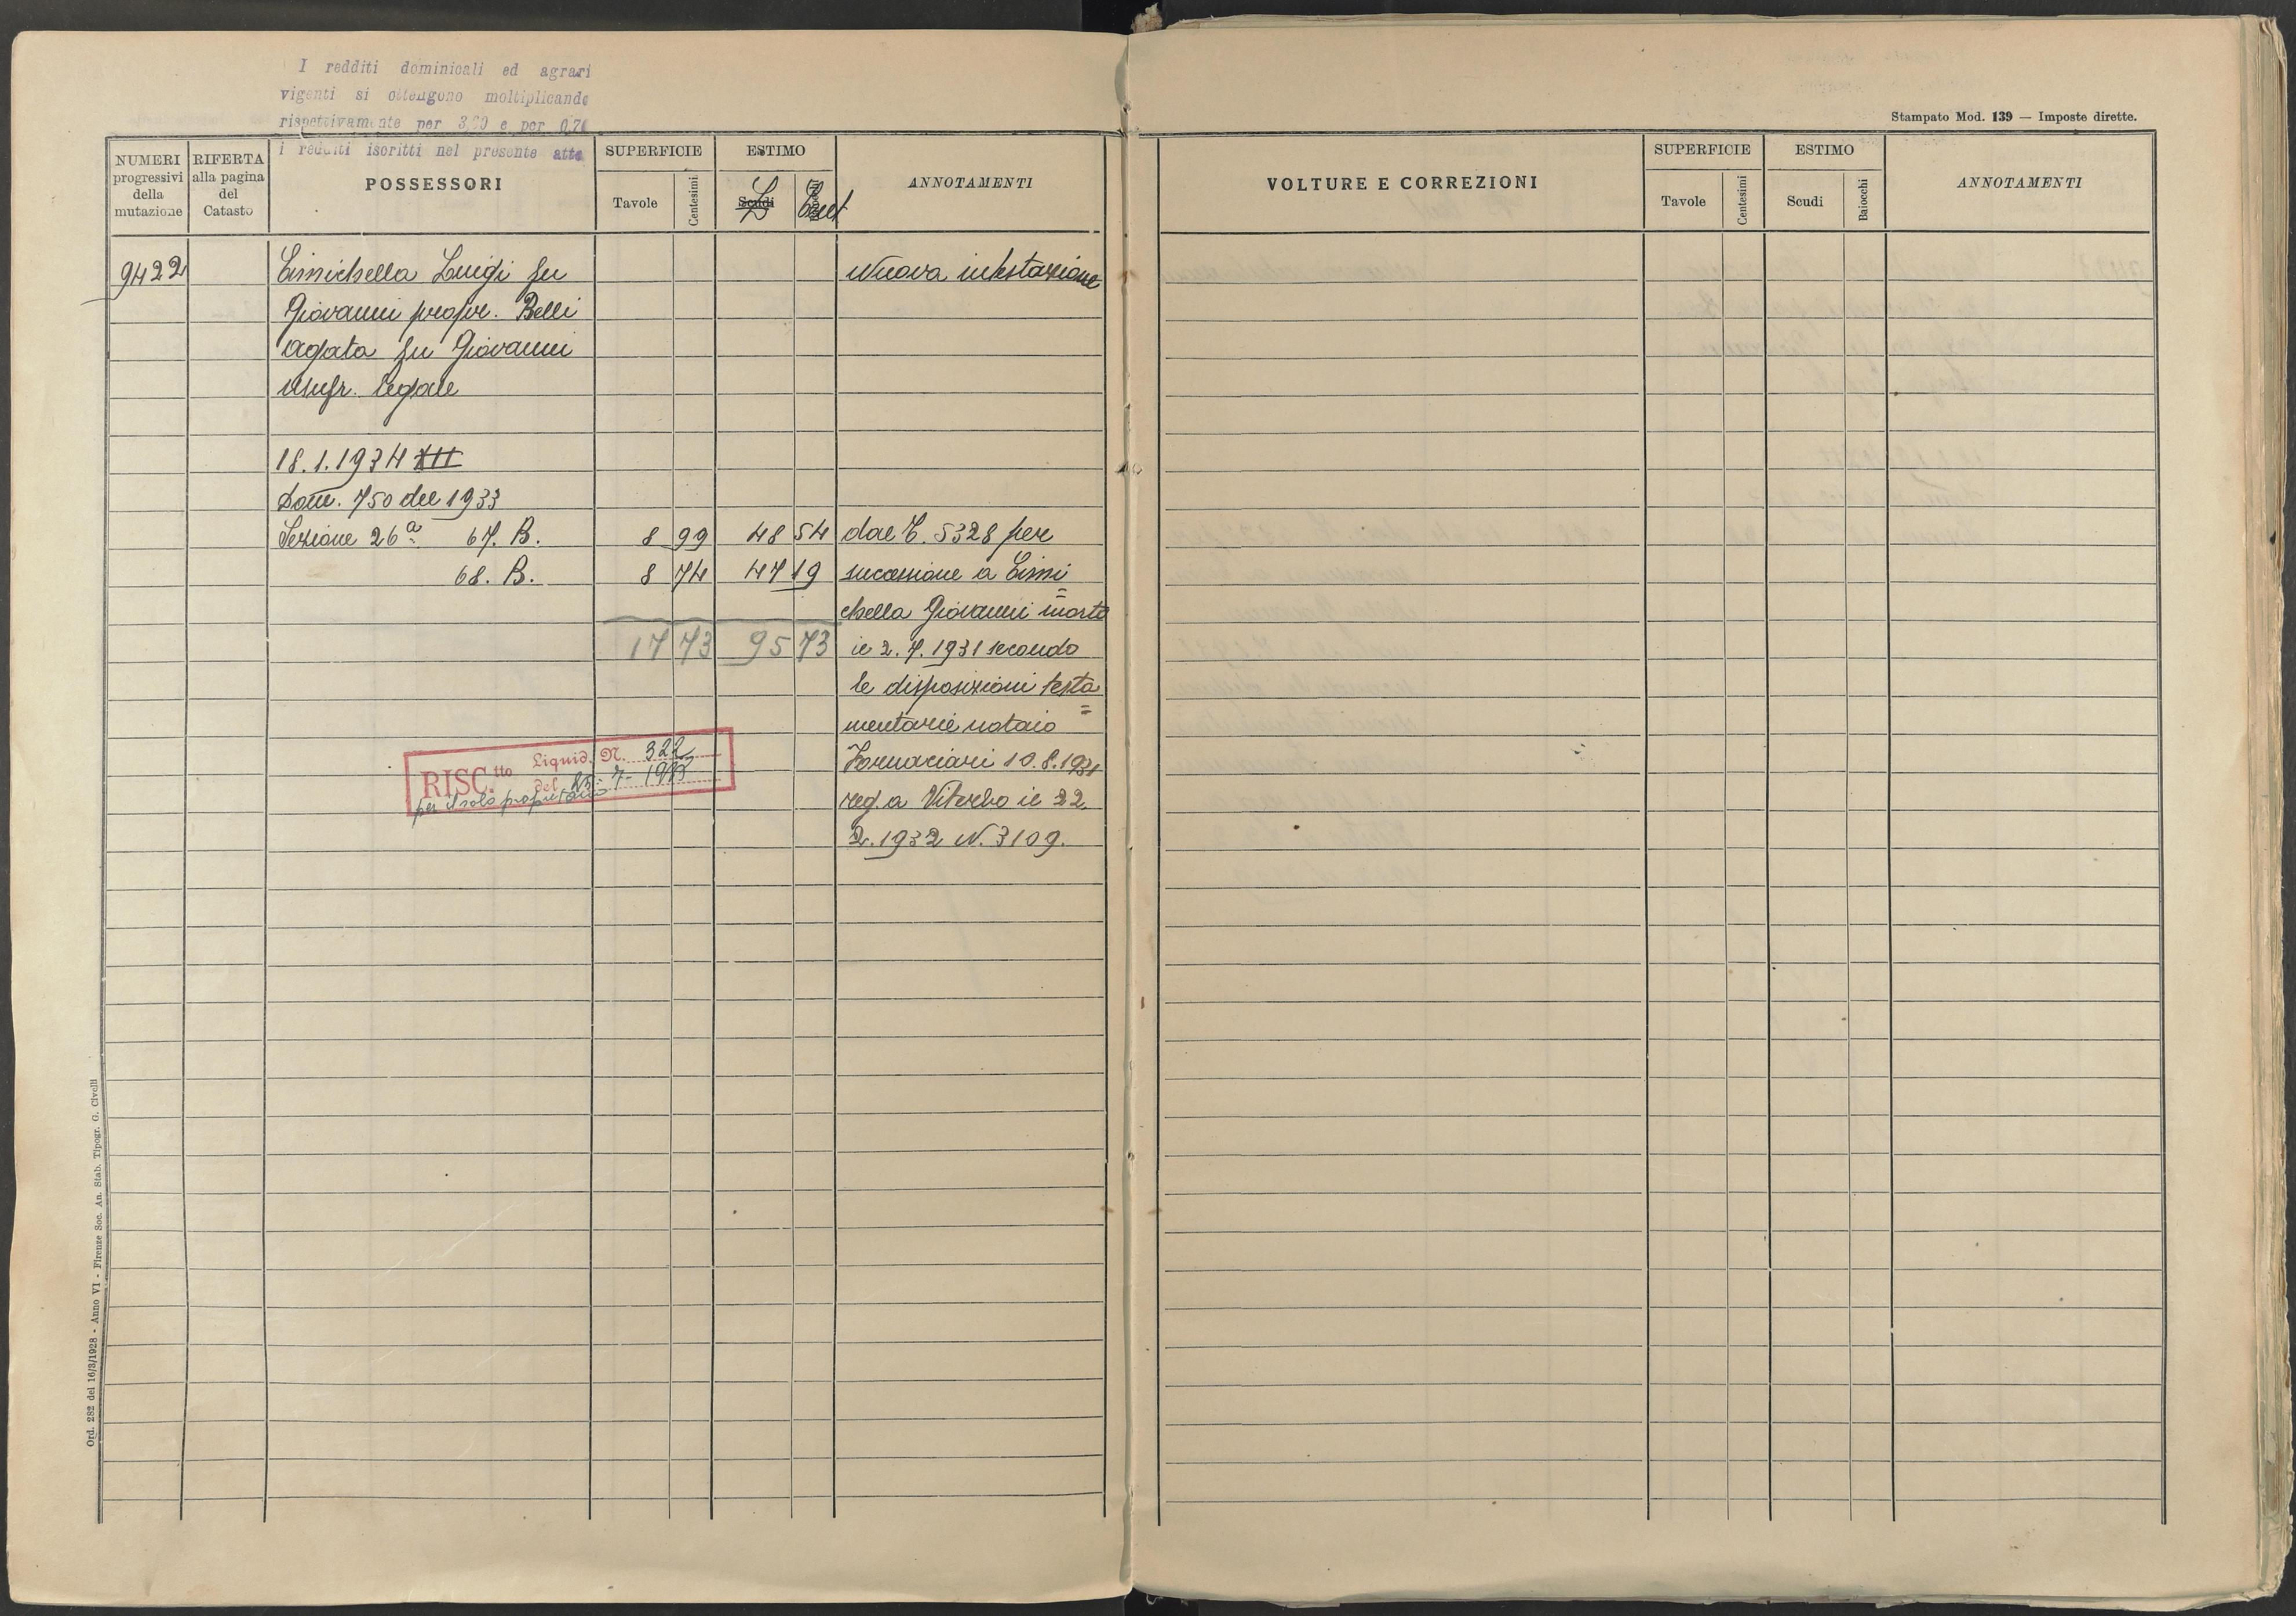 I redditi dominicali ed agrari
vigenti si ottengono moltiplicando
rispettivamente per 3,60 e per 0,70
i redditi iscritti nel presente atto
Stampato Mod. 139 — Imposte dirette.
NUMERI progressivi della mutazione
RIFERTA alla pagina del Catasto
POSSESSORI
SUPERFICIE
Tavole Centesimi
ESTIMO
Scudi Baiocchi
L Cent
ANNOTAMENTI
9422 Cimichella Luigi fu Nuova intestazione
Giovanni propr. Belli
Agata fu Giovanni
usufr. legale
18.1.1934 XII
Dom. 750 del 1933
Sezione 26ª 67. B. 8 99 48 54 dal C. 5328 per
68. B. 8 74 47 19 successione a Cimi
chella Giovanni = morto
17 73 95 73 il 2.7.1931 secondo
le disposizioni testa
mentarie notaio =
Fornaciari 10.8.1931
reg a Viterbo il 22
2.1932 N. 3109.
RISC.tto Liquid. N. 322
del 25-7-
per il solo proprietario
Ord. 282 del 16/3/1928 - Anno VI - Firenze Soc. An. Stab. Tipogr. G. Civelli
VOLTURE E CORREZIONI
SUPERFICIE
Tavole Centesimi
ESTIMO
Scudi Baiocchi
ANNOTAMENTI